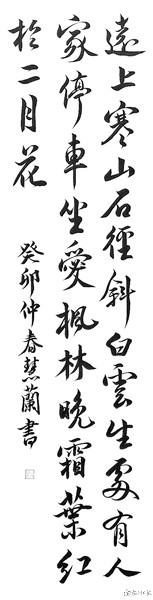 遠上寒山石徑斜白雲生處有人
家停車坐愛楓林晚霜葉紅
於二月花
癸卯仲春慧蘭書